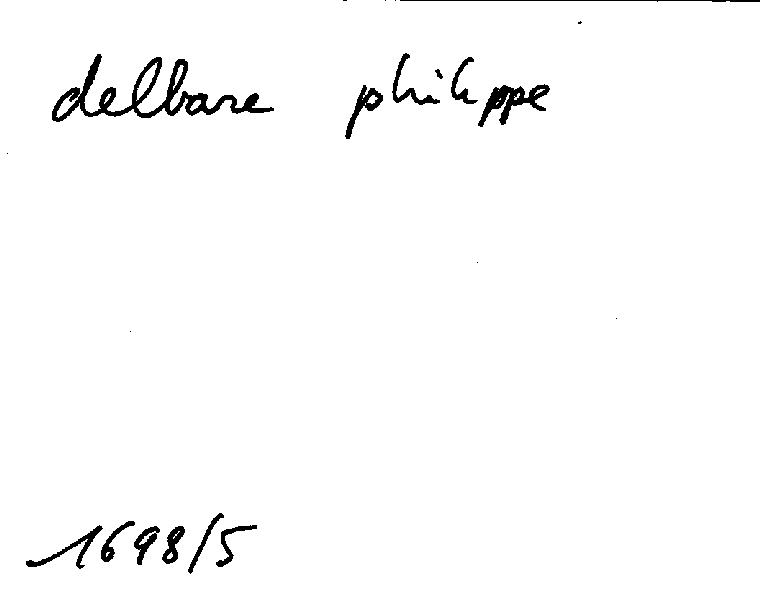 delbare philippe
1698/5